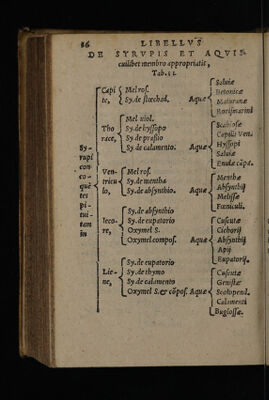 86 LIBELLVS
DE SYRVPIS ET AQVIS
cuilibet membro appropriatis,
Tab. 51.
Syrupi concoquētes pituitam in
Capite,
Mel ros.
Sy. de stœchad.
Aquæ
Saluiæ
Betonicæ
Maioranæ
Rorismarini
Thorace,
Mel viol.
Sy. de hyssopo
Sy. de prassio
Sy. de calamento.
Aquæ
Scabiosæ
Capilli Ven.
Hyssopi
Saluiæ
Enulæ cāpa.
Ventriculo
Mel ros.
Sy. de mentha
Sy. de absynthio.
Aquæ
Menthæ
Absynthij
Melissæ
Fœniculi.
Iecore,
Sy. de absynthio
Sy. de eupatorio
Oxymel S.
Oxymel compos.
Aquæ
Cuscutæ
Cichorij
Absynthij
Apij
Eupatorij.
Liene,
Sy. de eupatorio
Sy. de thymo
Sy. de calamento
Oxymel S. & cōpos.
Aquæ
Cuscutæ
Genistæ
Scolopend.
Calamenti
Buglossæ.